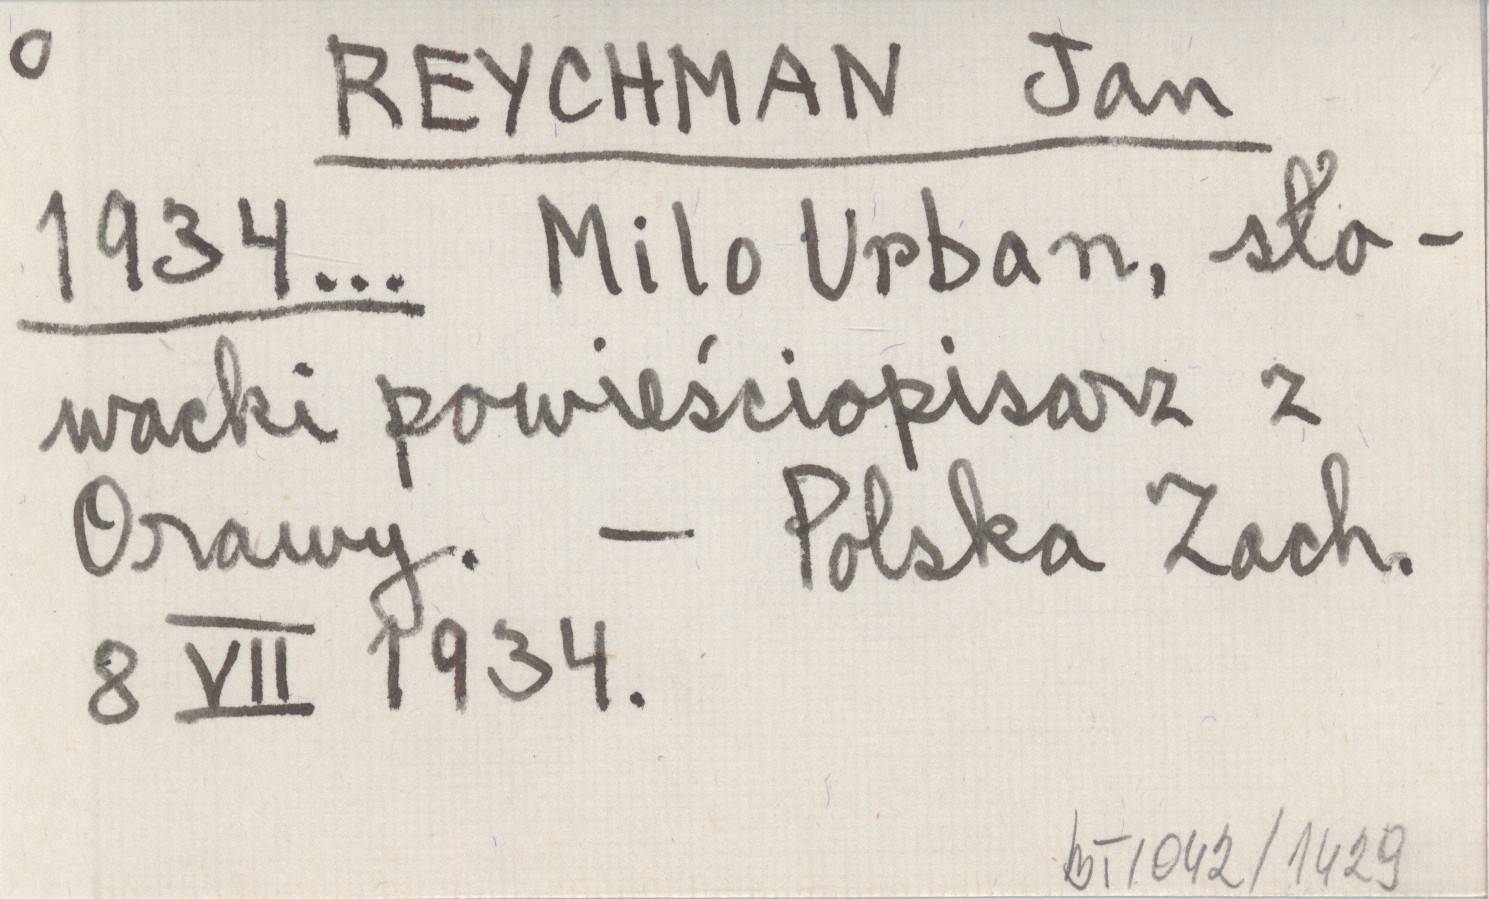 o
REYCHMAN Jan
1934... Milo Urban, sło-
wacki powieściopisarz z
Orawy. — Polska Zach.
8 VII 1934.
bT1042/1429